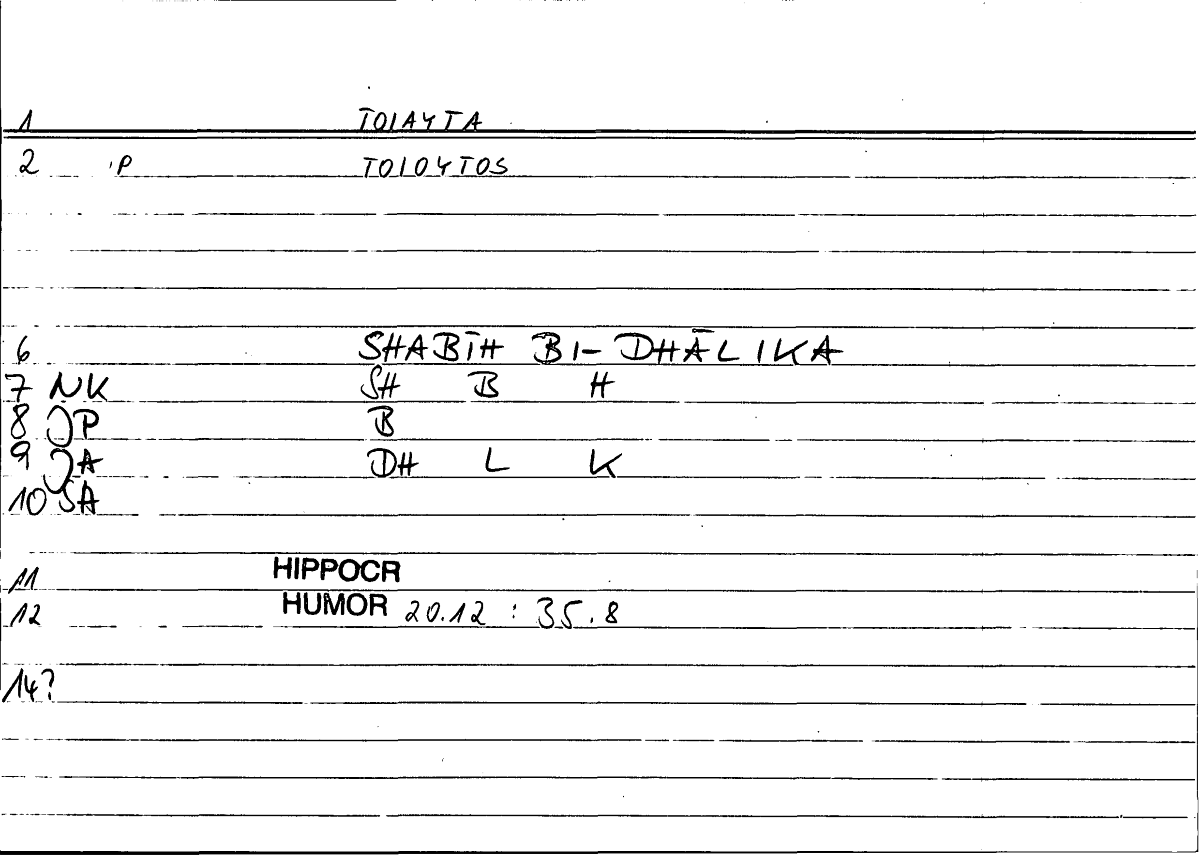 1 TOIAYTA
2 P TOIOYTOS
6 SHABĪH BI-DHĀLIKA
7 NK SH B H
8 JP B
9 JA DH L K
10 SA
11 HIPPOCR
12 HUMOR 20.12 : 35.8
14?